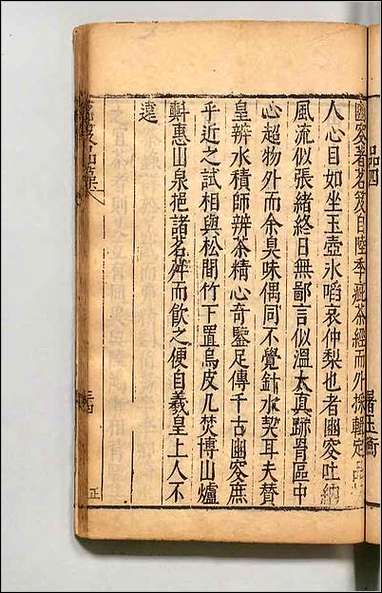 品四
屠
幽叜著茗笈自陸季疵茶經而外採輯定
人心目如坐玉壺氷啗哀仲梨也者幽叜吐納
風流似張緒終日無鄙言似溫太真跡骨區中
心超物外而余臭味偶同不覺針水契耳夫贊
皇辨水積師辨茶精心奇鑒足傳千古幽叜庶
乎近之試相與松間竹下置烏皮几焚博山爐
㪺惠山泉挹諸茗荈而飲之便自羲皇上人不
遠
品藻
正